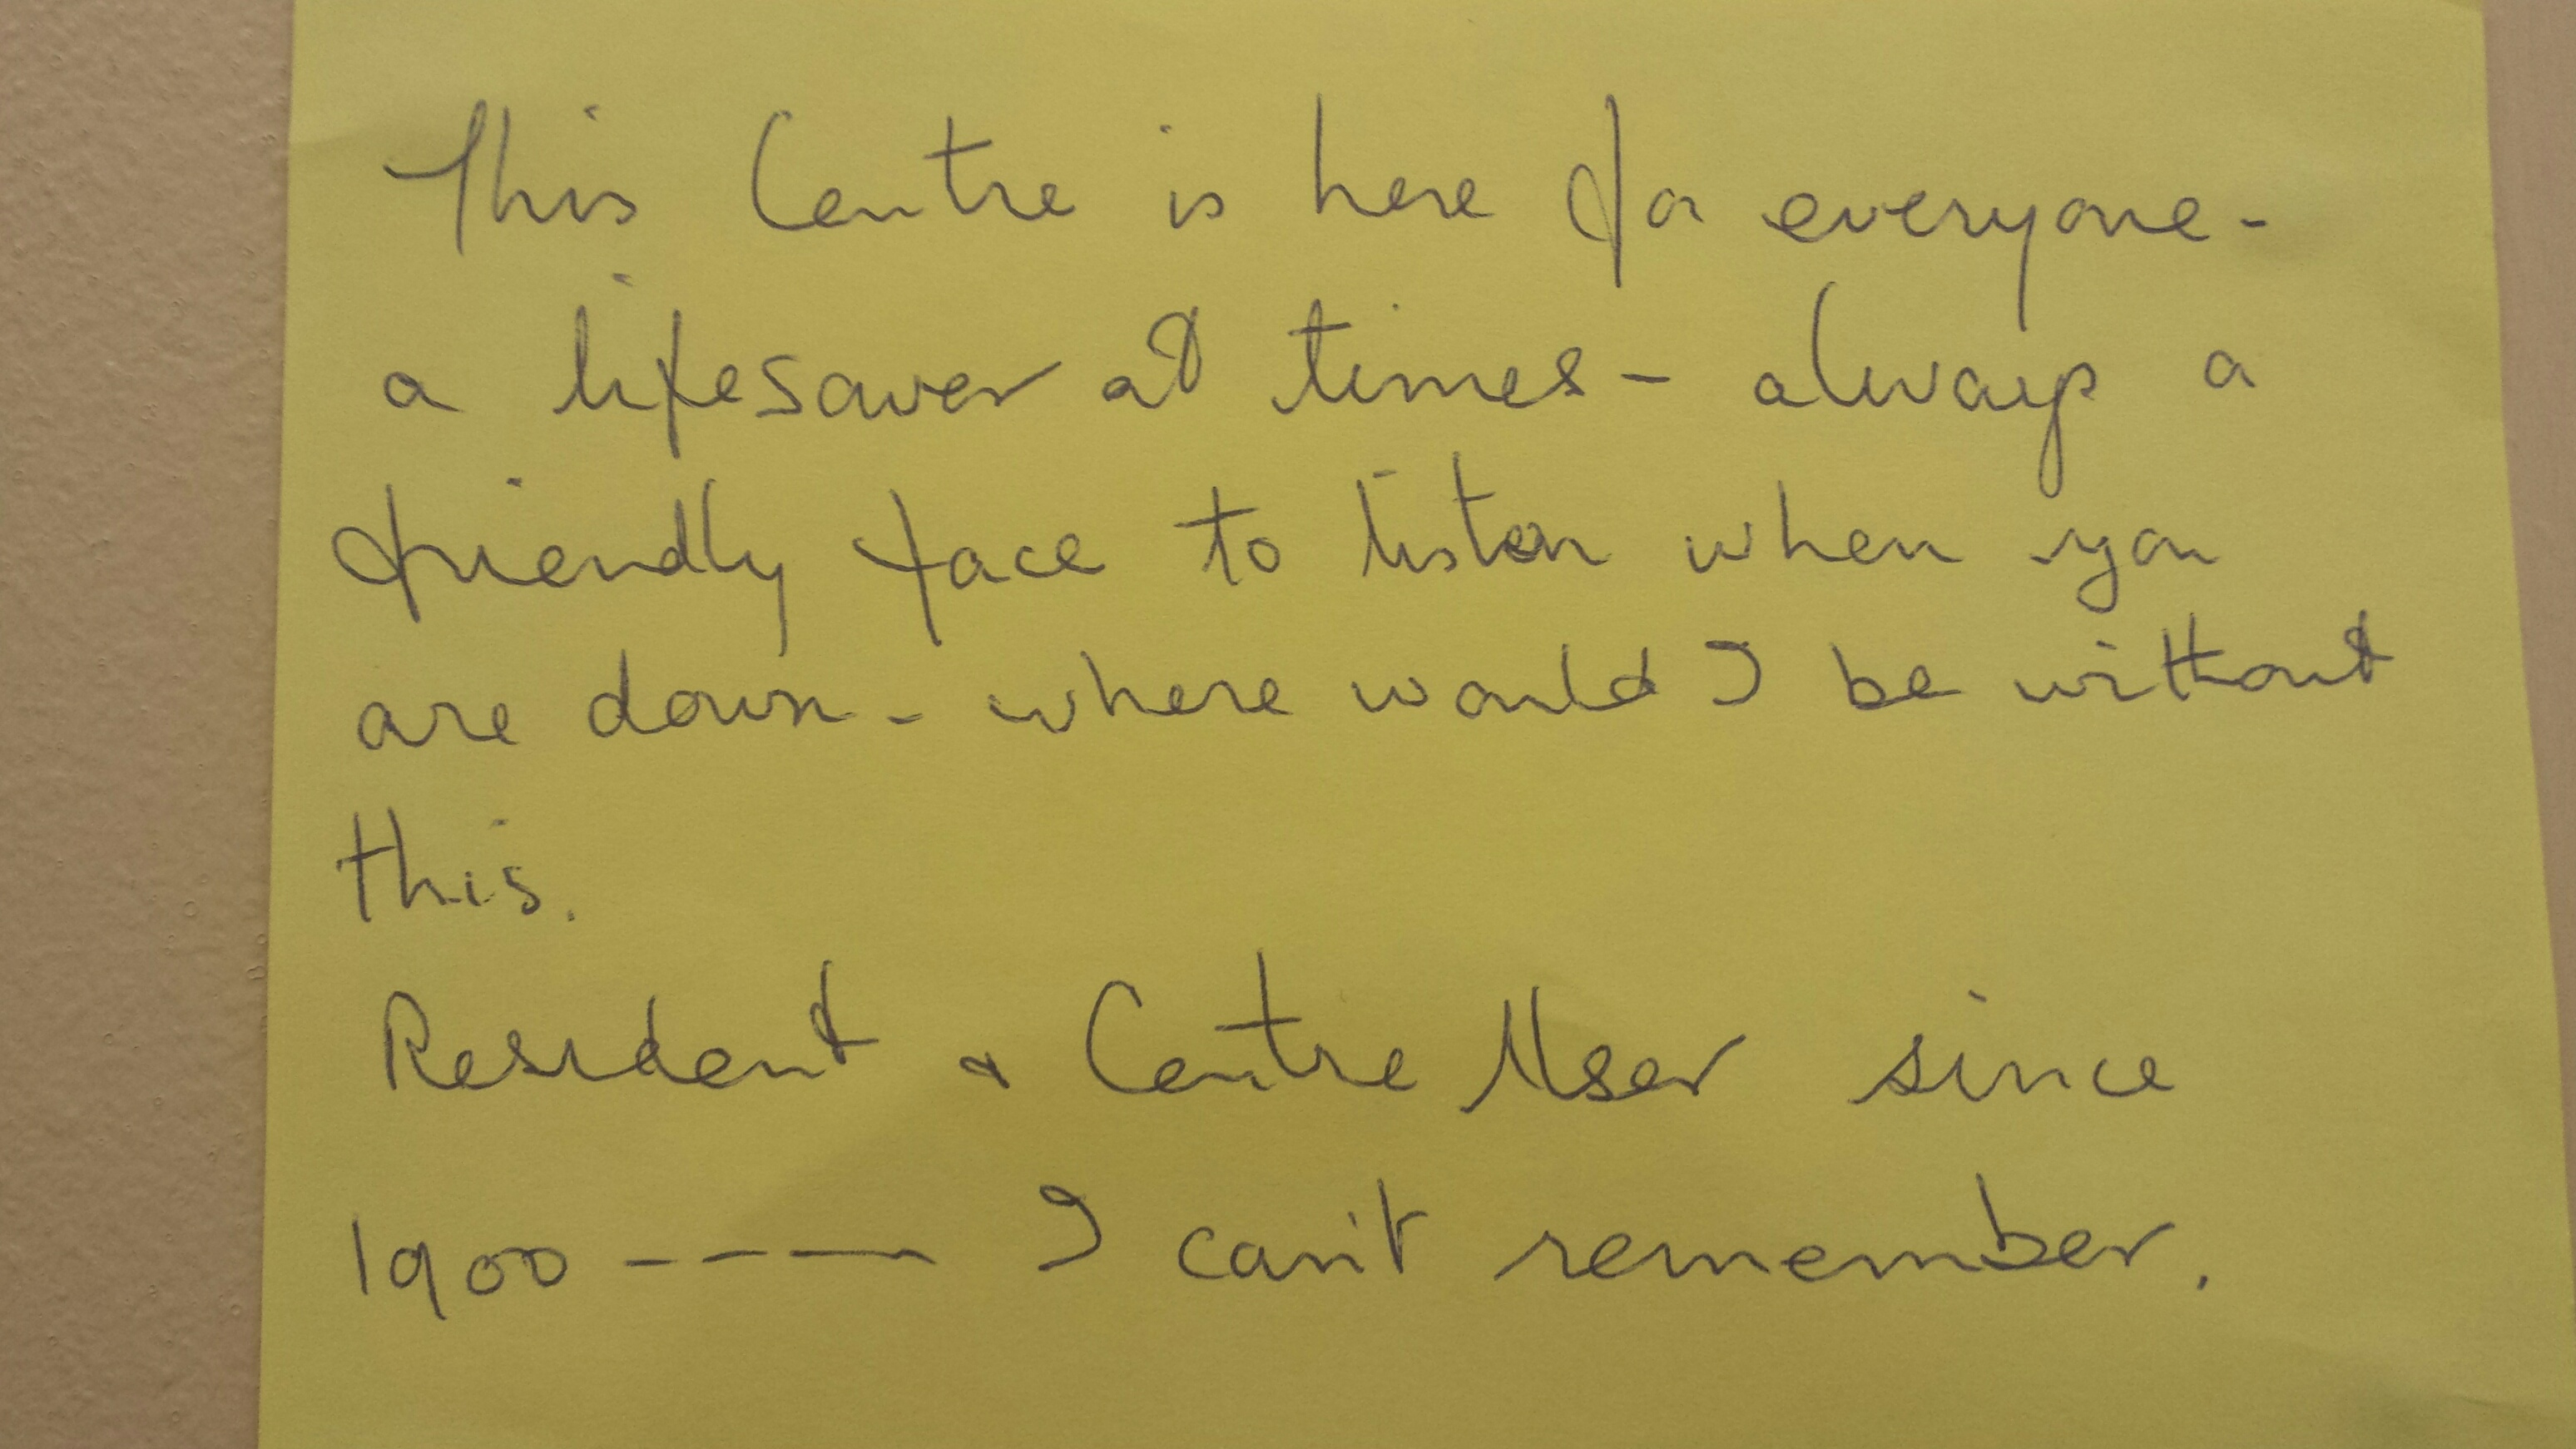 This Centre is here for everyone -
a lifesaver at times - always a
friendly face to listen when you
are down - where would I be without
this.
Resident & Centre User since
1900 - - — I can't remember.